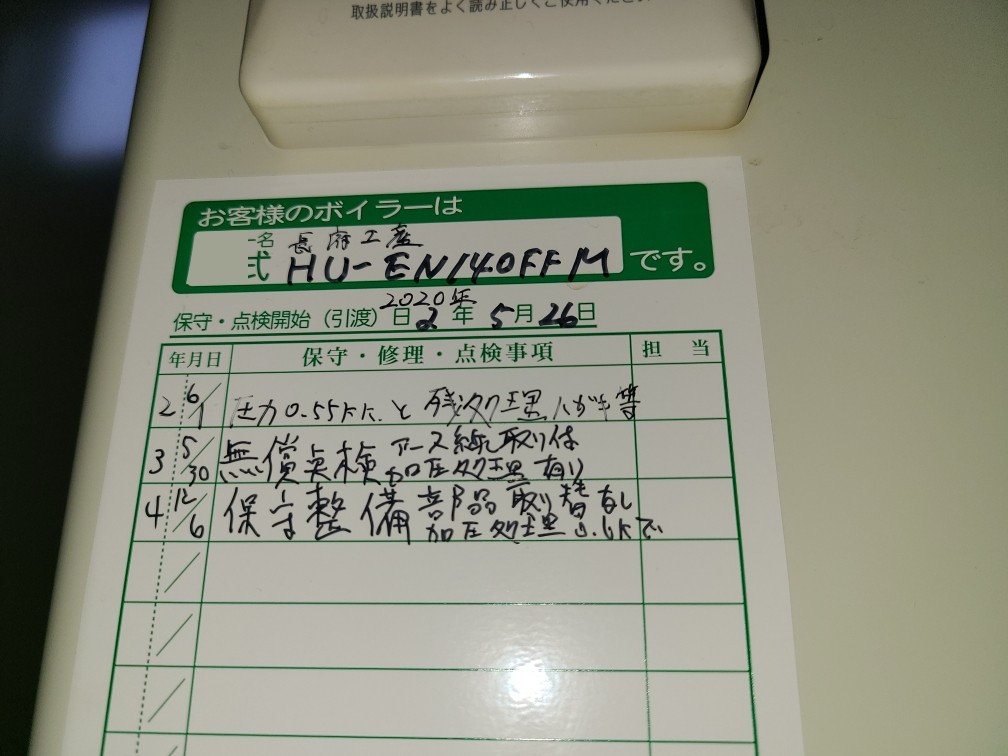 取扱説明書をよく読み正しくご使用ください
お客様のボイラーは
名 長府工産
式 HU-EN140FFM です。
2020年
保守・点検開始（引渡）日 2年 5月 26日
年月日 保守・修理・点検事項 担 当
2 6/1 圧力0.55 と 等
3 5/30 無償点検 アース線取り付
加圧処理有り
4 12/6 保守整備 部品取り替なし
加圧処理